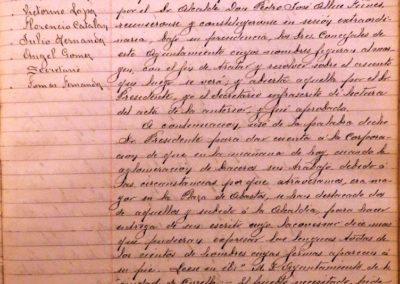 Victorino Lopez
Florencio Catalan
Julio Hernandez
Angel Gomez
Secretario
Tomas Fernandez
por el Sr. Alcalde Don Pedro José Arlue Gómez,
reunieronse y constituyeronse en sesión extraordi-
naria, bajo su presidencia, los Sres Concejales de
este Ayuntamiento cuyos nombres figuran al mar-
gen, con el fin de tratar y resolver sobre el asunto
que luego se verá, y abierta aquella por el Sr.
Presidente, yo el Secretario infrascrito di lectura
del acta de la anterior, y fué aprobada.
A continuación, usó de la palabra dicho
Sr. Presidente para dar cuenta á la Corpora-
cion de que en la mañana de hoy, cuando la
aglomeracion de braceros sin trabajo debido á
las circunstancias por que atravesamos, era ma-
yor en la Plaza de Abastos, se han destacado dos
de aquellos y subido á la Alcaldia, para hacer
entrega de un escrito cuya
que pudieran expresar las lenguas todas de
los cientos de hombres cuyas firmas aparecen á
su pie. Leese en él: "M. I. Ayuntamiento de la
ciudad de